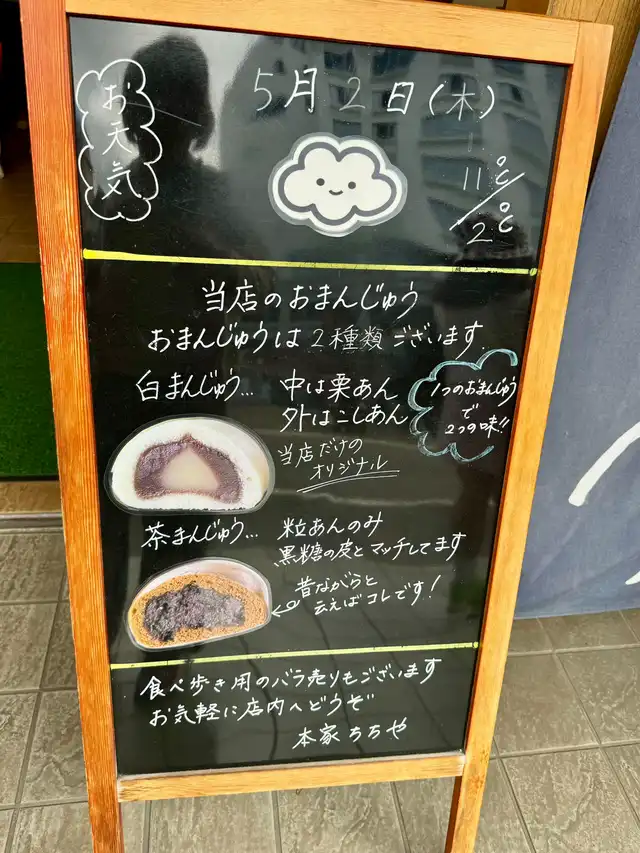 お天気
5月2日(木)
11℃/2℃
当店のおまんじゅう
おまんじゅうは2種類ございます
白まんじゅう…
中は栗あん
外はこしあん
1つのおまんじゅう
で
2つの味!!
当店だけの
オリジナル
茶まんじゅう…
粒あんのみ
黒糖の皮とマッチしてます
昔ながらと
云えばコレです!
食べ歩き用のバラ売りもございます
お気軽に店内へどうぞ
本家ちちや